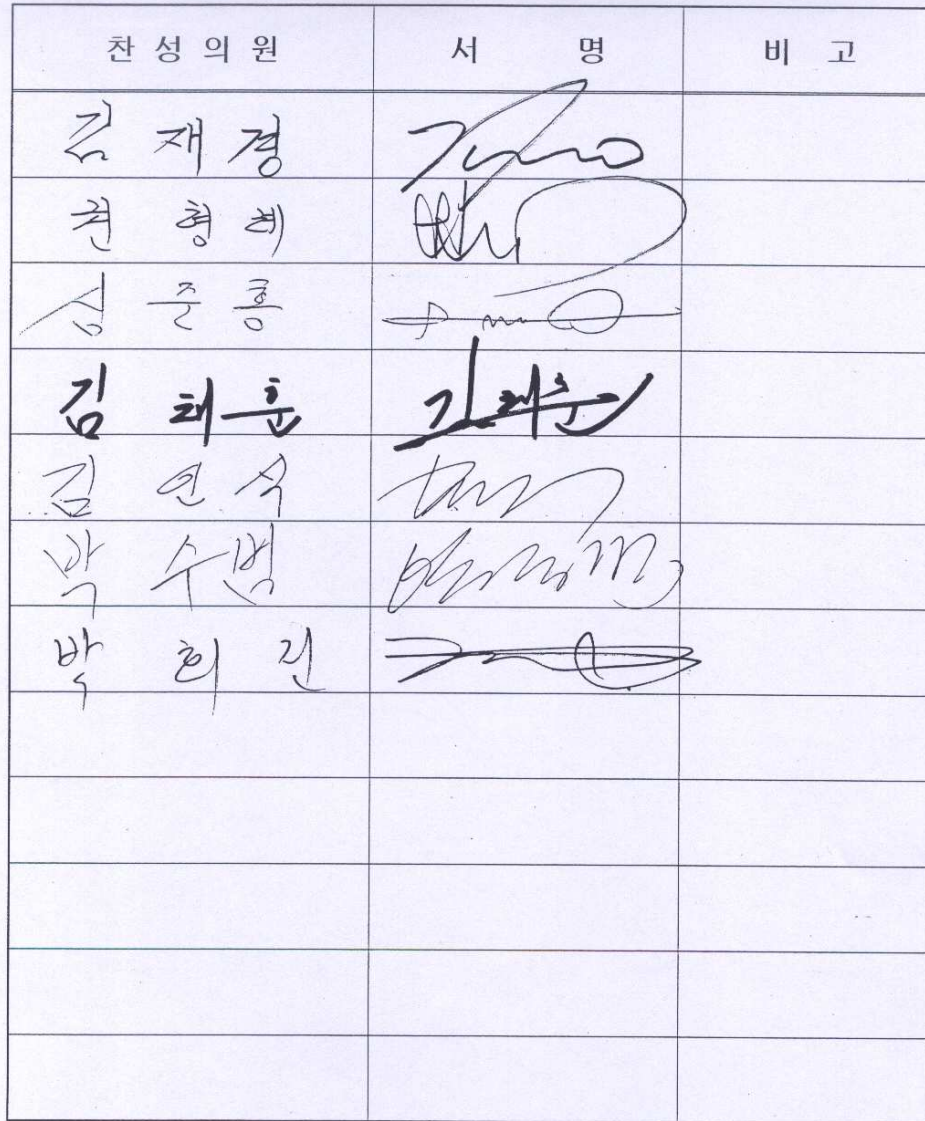 찬 성 의 원 서 명 비 고
김 재 경
권 형 례
심 준 홍
김 태 훈 김태훈
김 연 식
박 수 범
박 희 진